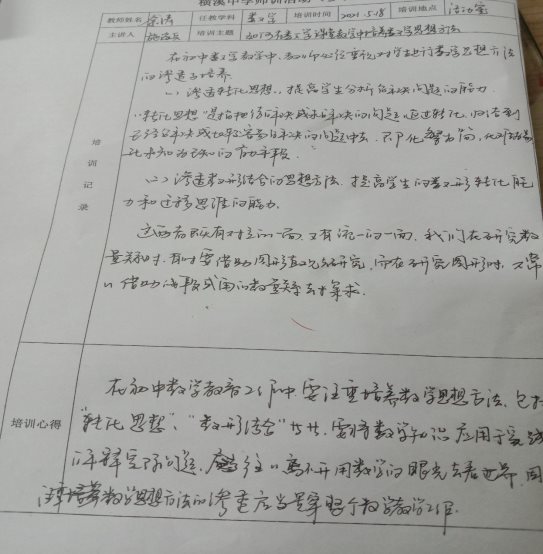 教师姓名 徐涛 任教学科 数学 培训时间 2021.5.18 培训地点 活动室
主讲人 培训主题 如何在数学课堂教学中培养数学思想方法
在初中数学教学中,教师必须重视对学生进行数学思想方法
的渗透与培养
(一)渗透转化思想,提高学生分析解决问题的能力
"转化思想"是指把待解决或未解决的问题,通过转化,归结到
已经解决或比较容易解决的问题中去,不即化繁为简,化难为易
化未知为已知的有力手段.
(二)渗透数形结合的思想方法,提高学生的数形转化能
力和迁移思维的能力.
这两者既有对立的一面,又有统一的一面,我们在研究数
量关系时,有时要借助图形直观研究,而在研究图形时,又常
借助线段或角的数量关系去探求.
培训记录
在初中数学教育工作中,要注重培养数学思想方法,包括
"转化思想"、"数形结合"等等,要将数学知识应用于实践
讲解实际问题,往往离不开用数学的眼光去看世界,因
数学思想方法的渗透应当贯穿整个教学工作.
培训心得